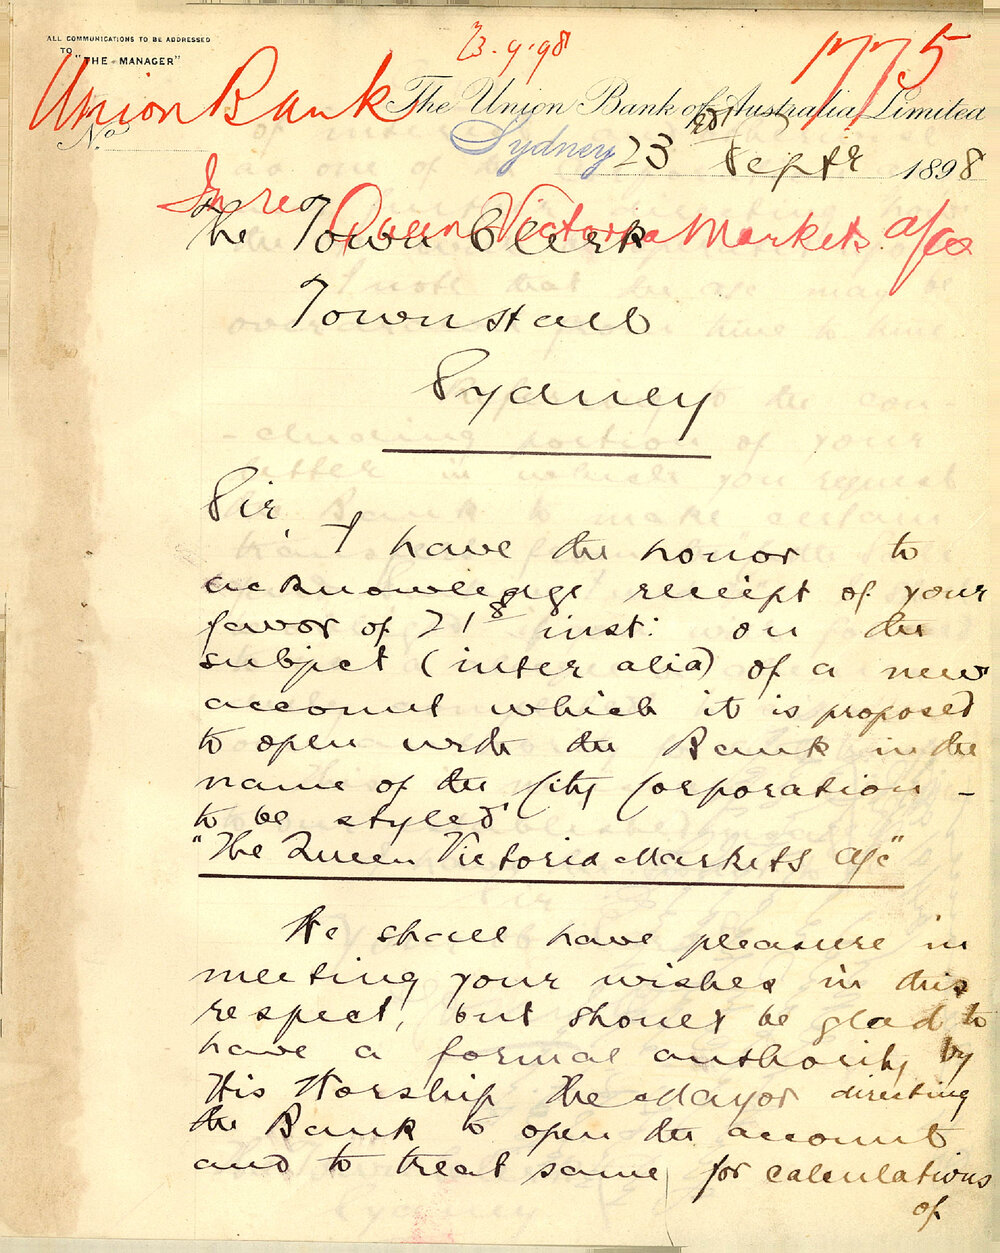 ALL COMMUNICATIONS TO BE ADDRESSED
TO "THE MANAGER"
23.9.98
1775
Union Bank
The Union Bank of Australia Limited
No.
Sydney 23 Septr 1898
In re Queen Victoria Markets a/cs
The Town Clerk
Town Hall
Sydney
Sir,
I have the honor to
acknowledge receipt of your
favor of 21st inst: on the
subject (inter alia) of a new
account which it is proposed
to open with the Bank in the
name of the City Corporation –
to be styled
"The Queen Victoria Markets a/c"
We shall have pleasure in
meeting your wishes in this
respect, but should be glad to
have a formal authority by
His Worship the Mayor directing
the Bank to open the account
and to treat same for calculations
of